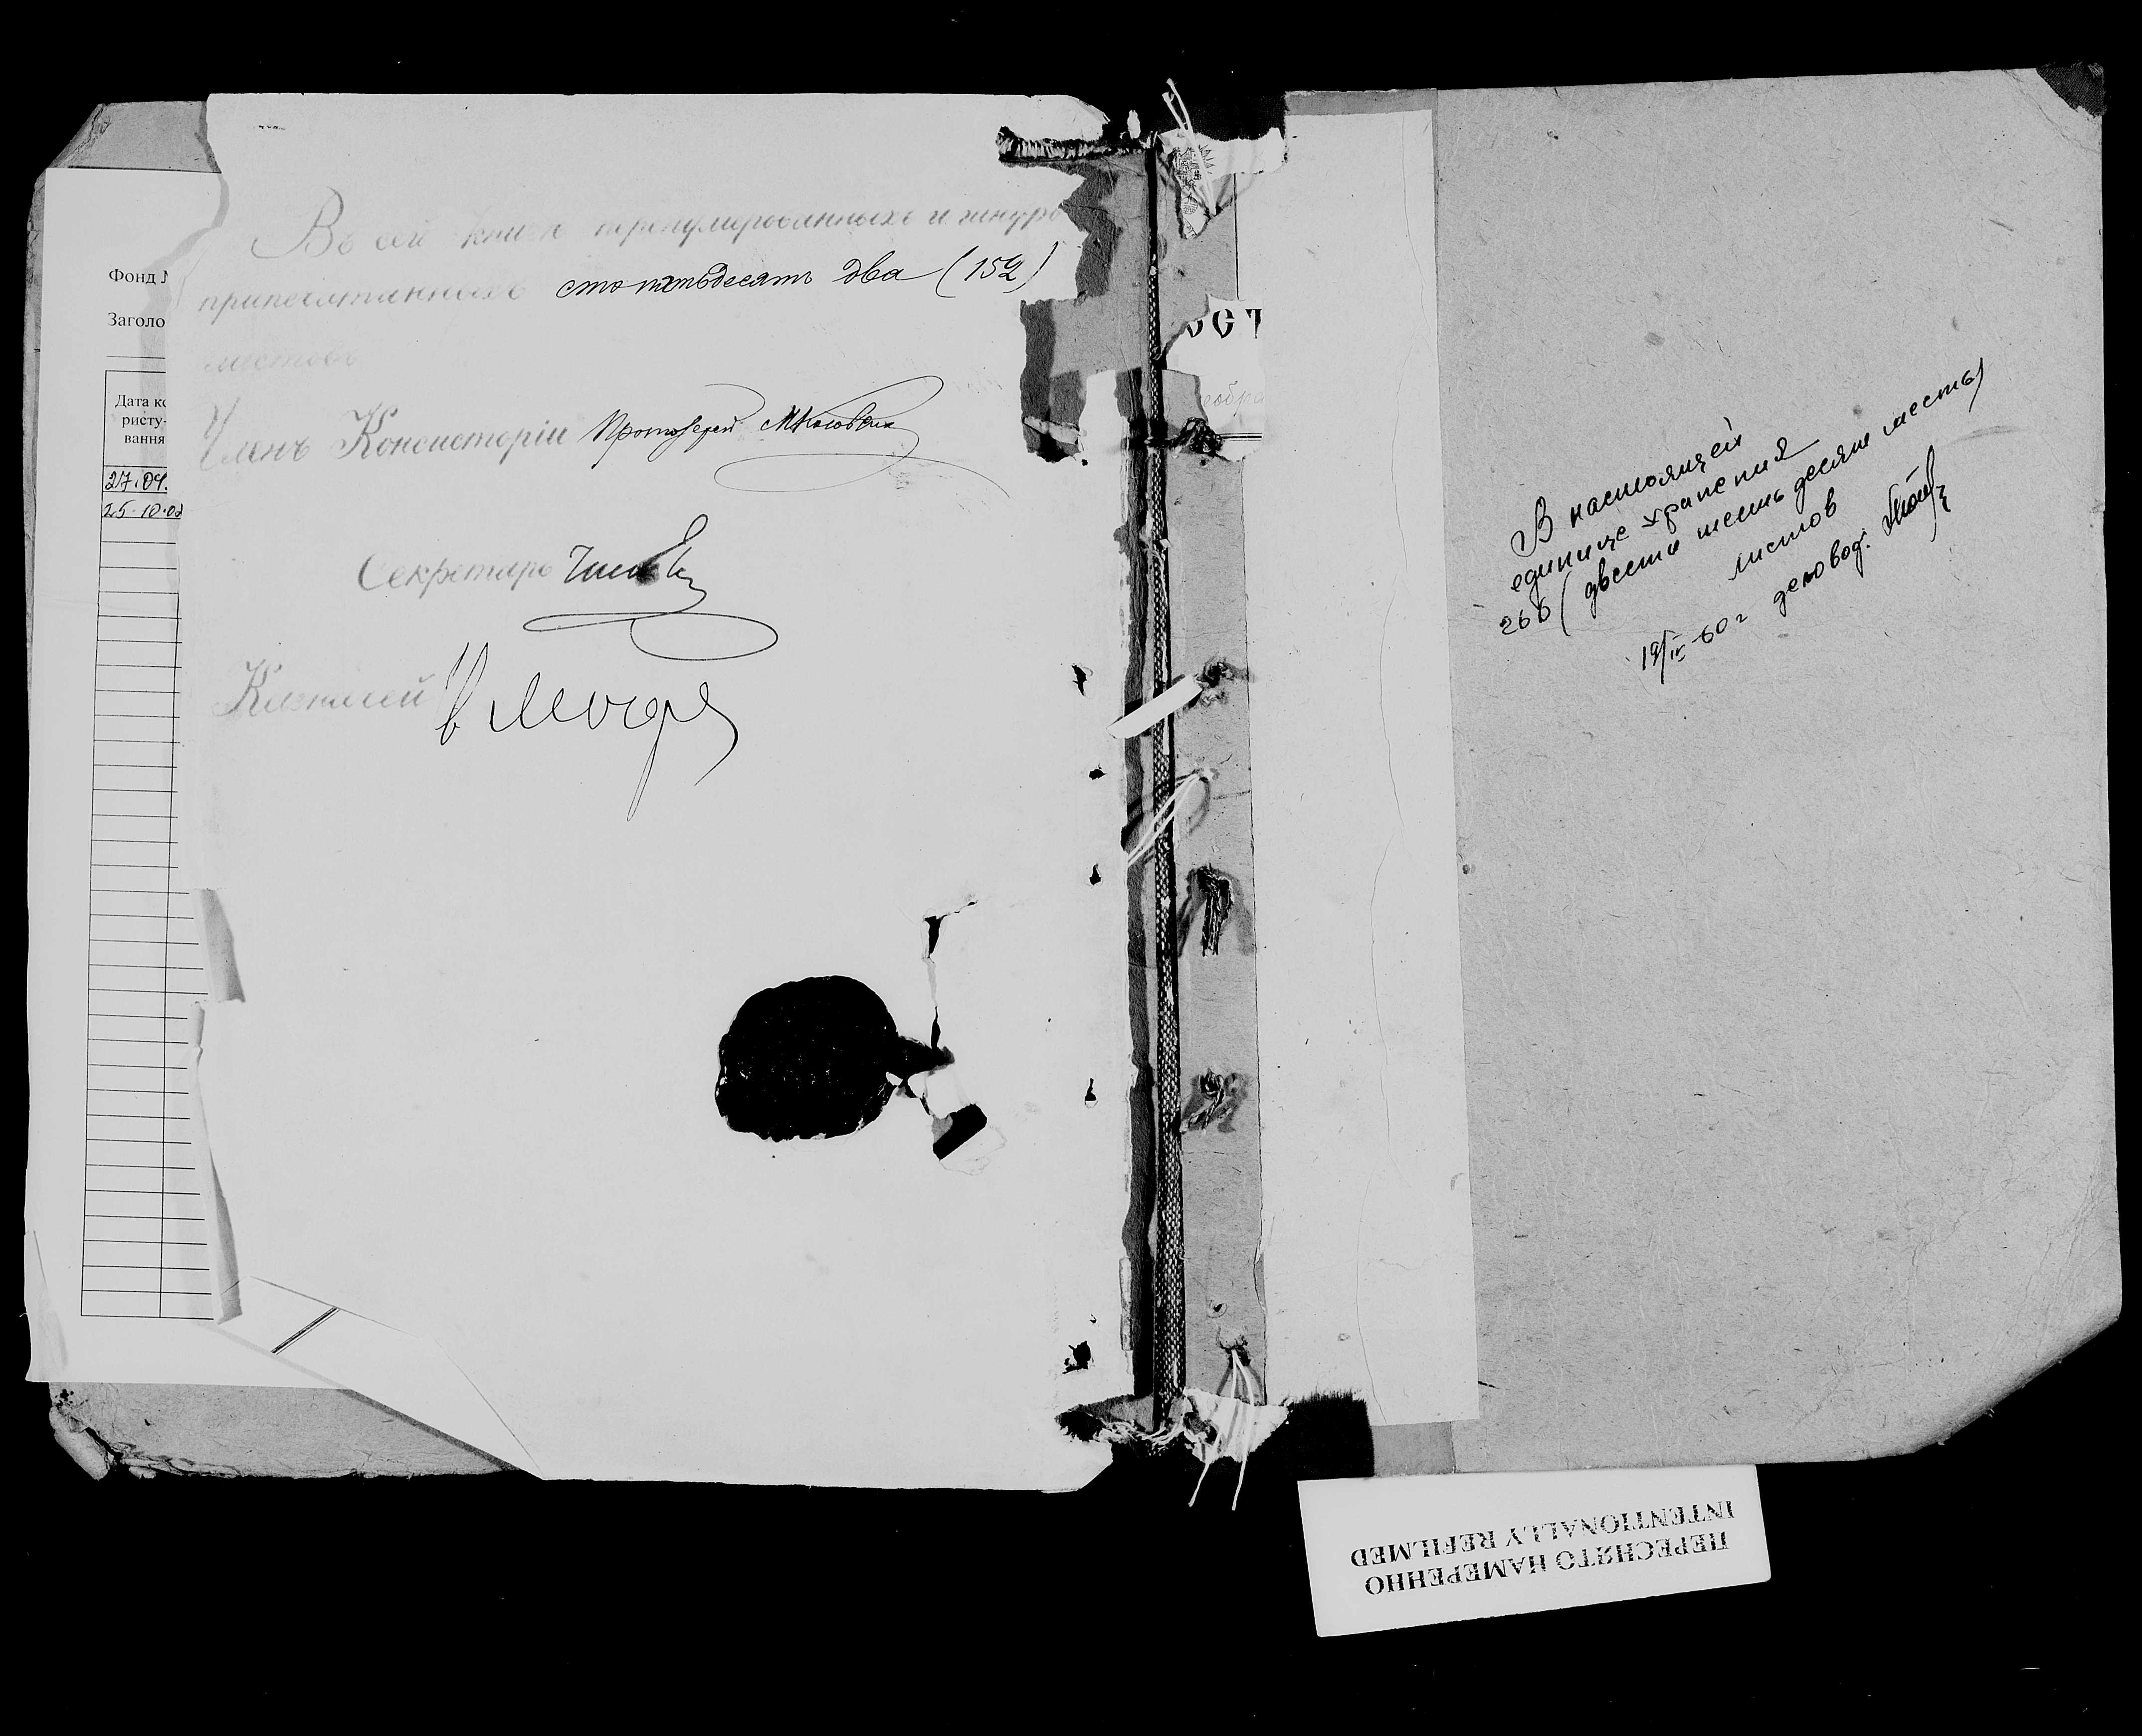 Фонд
Заголо
Дата ко
ристу-
вання
27.04.
25.10.02
Въ сей книгѣ перенумерованныхъ и шнуро
припечатанныхъ сто пятьдесятъ два (152)
листовъ
Членъ Консисторіи Протоіерей
Секретарь
Казначей
ост
еобра
В настоящей
единице хранения
266 (двести шестьдесят шесть)
листов
19/IV-60 г деловод.
ПЕРЕСНЯТО НАМЕРЕННО
INTENTIONALLY REFILMED